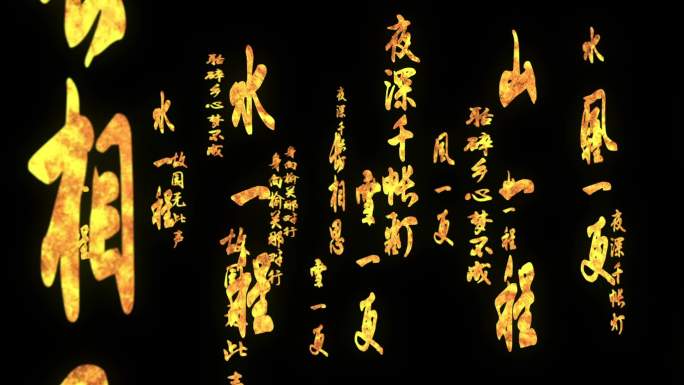 相
水一程
故园无此声
聒碎乡心梦不成
水一程
故园无此声
身向榆关那畔行
身向榆关那畔行
夜深千
相思
雪一更
雪一更
夜深千帐灯
风一更
聒碎乡心梦不成
山一程
山一程
水
風一更
夜深千帐灯